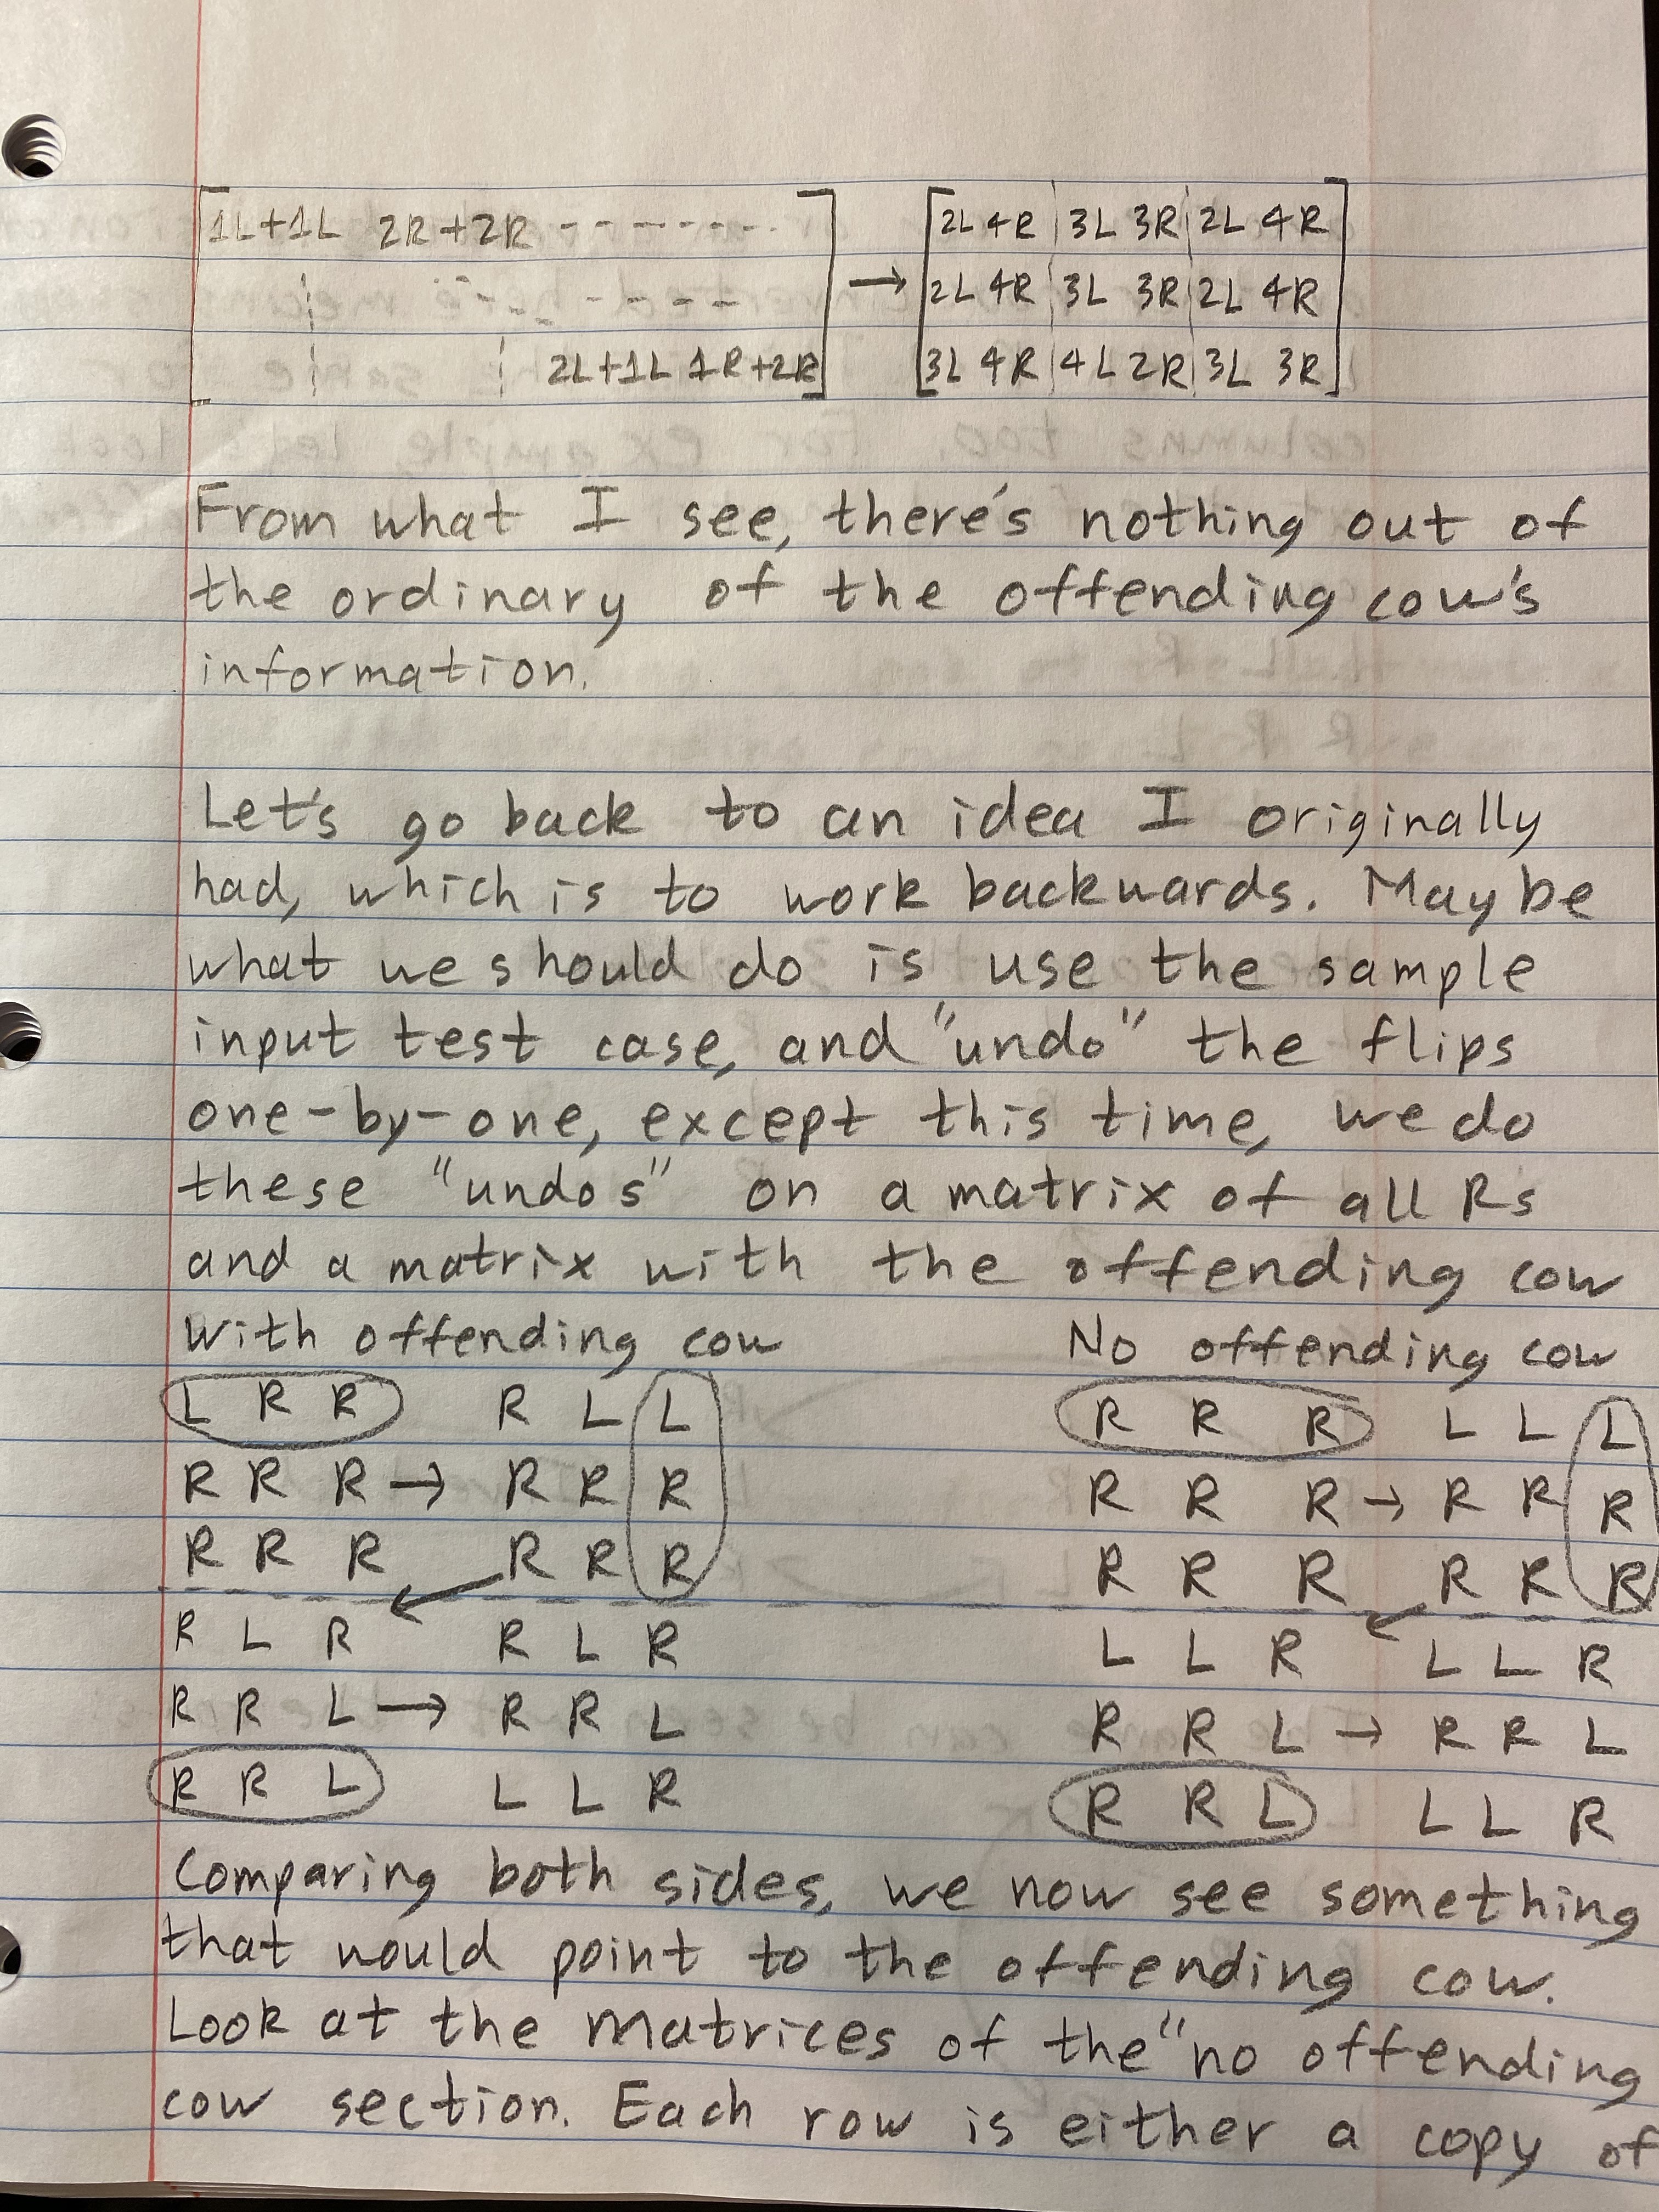 1L+1L 2R+2R - - - - - - - . → 2L 4R | 3L 3R | 2L 4R
2L 4R | 3L 3R | 2L 4R
2L+1L 1R+2R 3L 4R | 4L 2R | 3L 3R
From what I see, there's nothing out of
the ordinary of the offending cow's
information.
Let's go back to an idea I originally
had, which is to work backwards. Maybe
what we should do is use the sample
input test case, and "undo" the flips
one-by-one, except this time, we do
these "undos" on a matrix of all Rs
and a matrix with the offending cow
With offending cow No offending cow
L R R R L L R R R L L L
R R R → R R R R R R → R R R
R R R R R R R R R R R R
R L R R L R L L R L L R
R R L → R R L R R L → R R L
R R L L L R R R L L L R
Comparing both sides, we now see something
that would point to the offending cow.
Look at the matrices of the "no offending
cow section. Each row is either a copy of